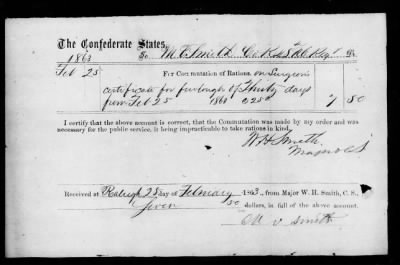 The Confederate States,
1863 To M V Smith Co K 48 NC Regt Dr.
Feb 25 For Commutation of Rations, on Surgeons
certificate for furlough of Thirty days
from Feb 25 1863 @ 25¢ 7 50
I certify that the above account is correct, that the Commutation was made by my order and was
necessary for the public service, it being impracticable to take rations in kind.
W H Smith,
Received at Raleigh 25 day of February 1863, from Major W. H. Smith, C. S.,
Seven 50 dollars, in full of the above account.
M V Smith